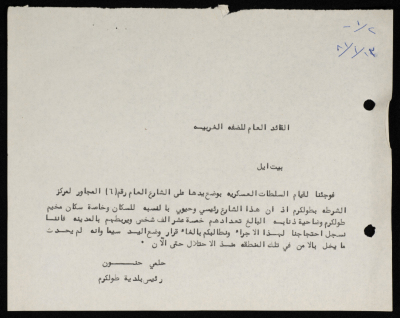 ١/٢ -
القائد العام للضفه الغربيه
بيت ايل
فوجئنا لقيام السلطات العسكريه بوضع يدها على الشارع العام رقم (٦) المجاور لمركز
الشرطه بطولكرم اذ ان هذا الشارع رئيسي وحيوي بالنسبه للسكان وخاصة سكان مخيم
طولكرم وضاحية ذنابه البالغ تعدادهم خمسة عشر الف شخص ويربطهم بالمدينه فاننا
نسجل احتجاجنا لهذا الاجراء ونطالبكم بالغاء قرار وضع اليد سيما وانه لم يحدث
ما يخل بالامن في تلك المنطقه منذ الاحتلال حتى الآن .
حلمي حنون
رئيس بلدية طولكرم